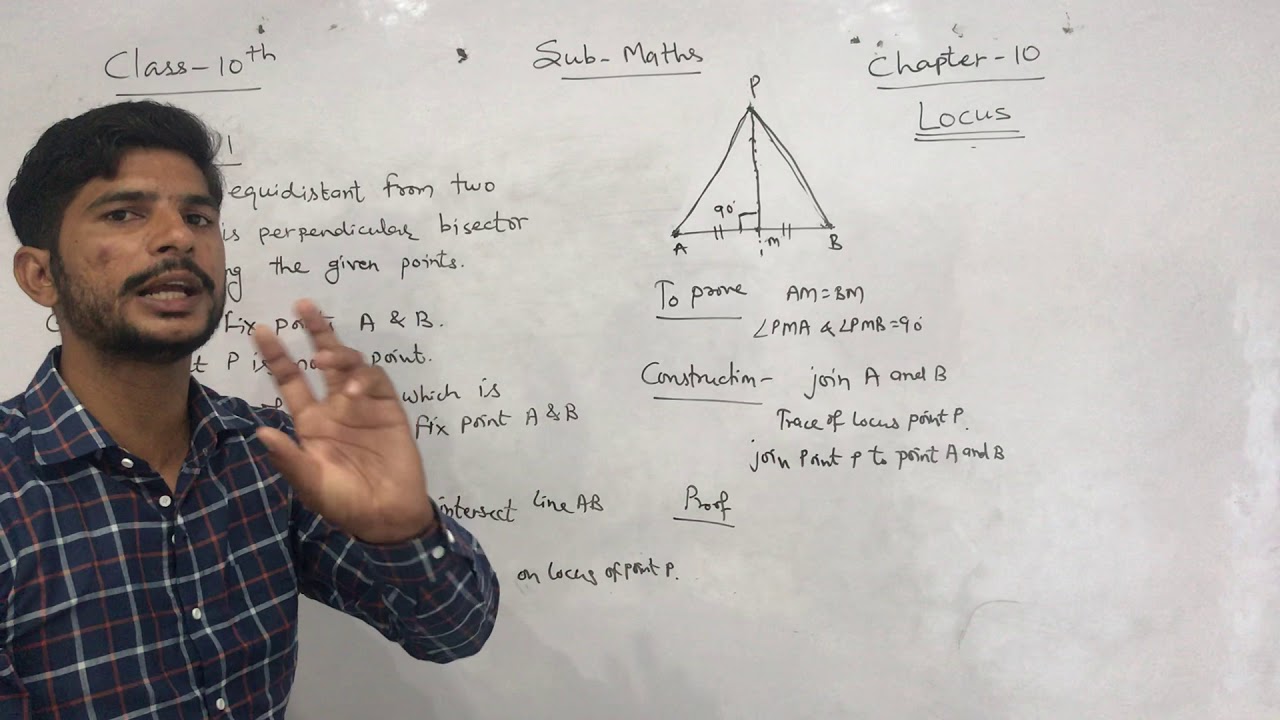 Class-10th
Sub- Maths
Chapter-10
Locus
1
equidistant from two
is perpendicular bisector
the given points.
fix points A & B.
P is point.
which is
fix point A & B
intersect line AB
on locus of point P.
P
90°
A
M
B
To prove AM=BM
∠PMA & ∠PMB=90°
Construction- join A and B
Trace of locus point P.
join Point P to point A and B
Proof